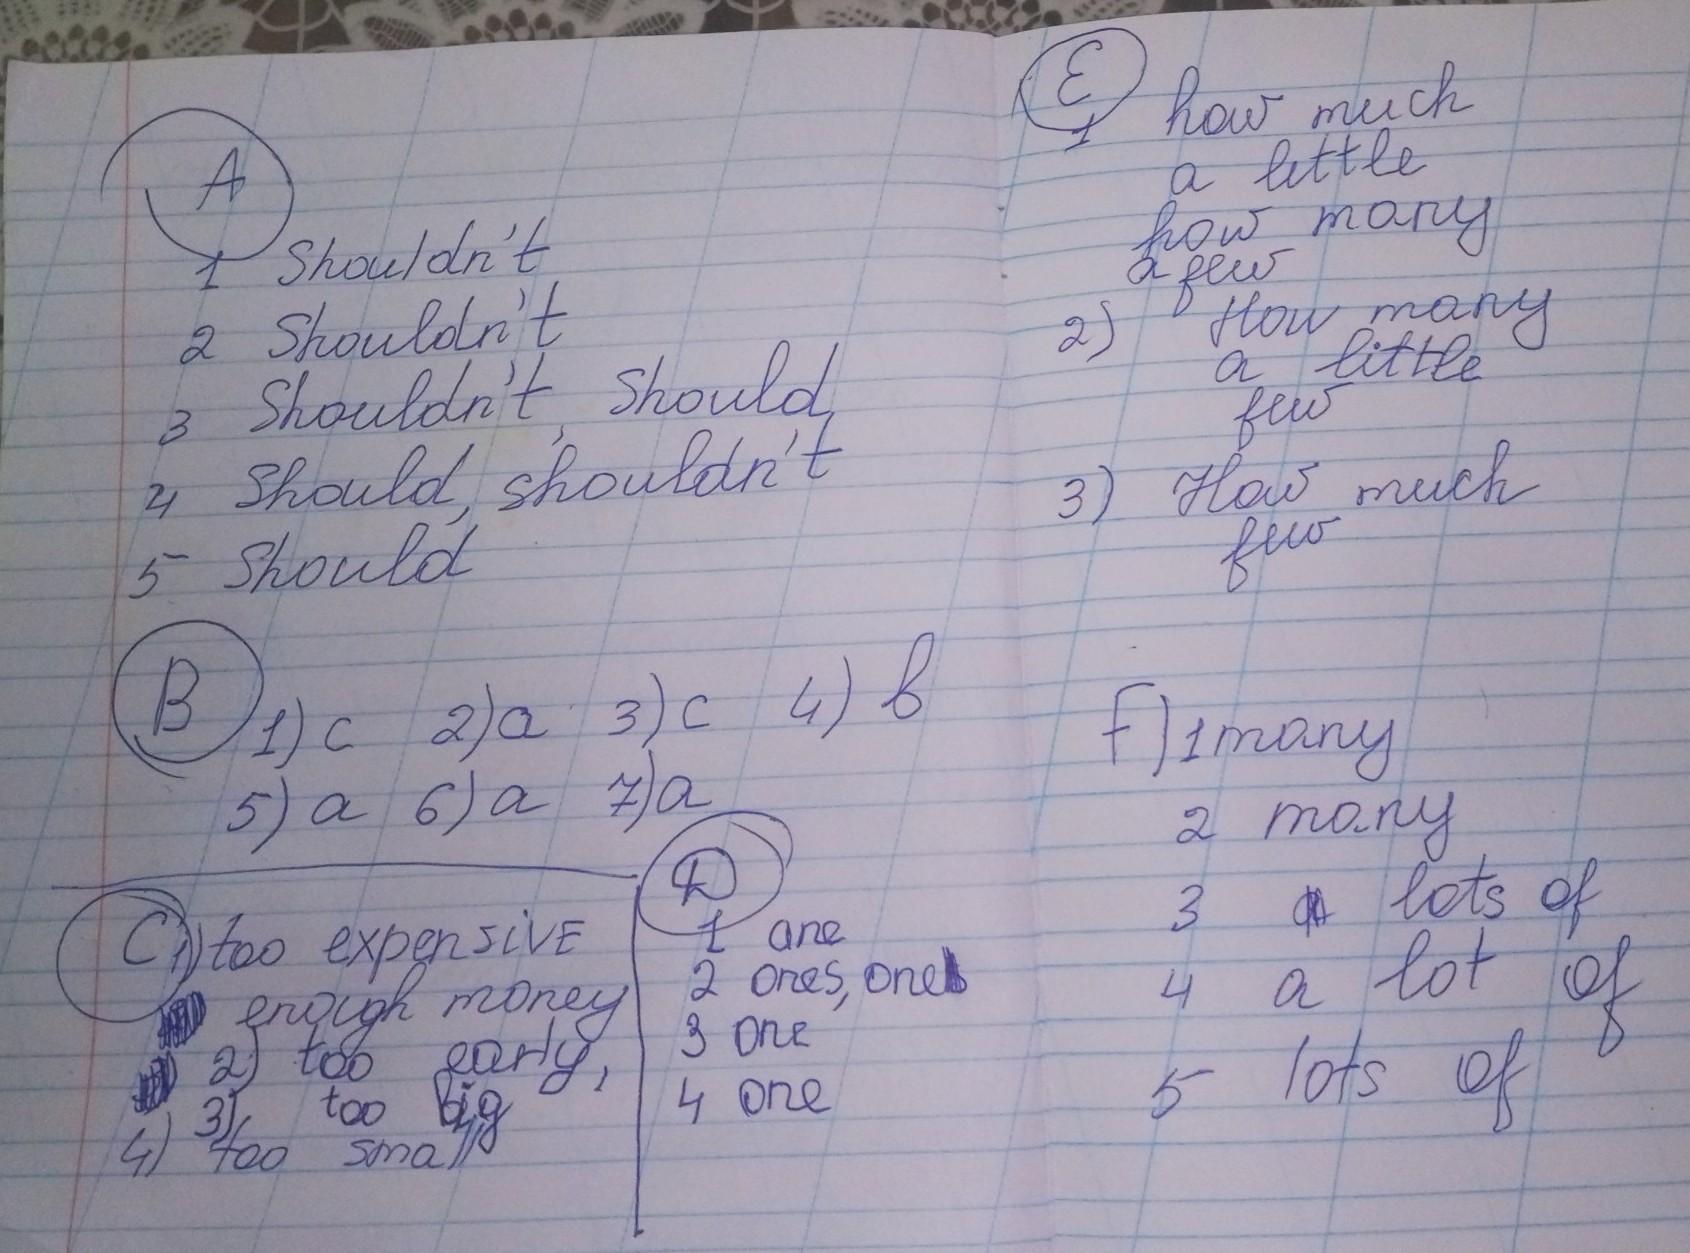 A
1 Shouldn't
2 Shouldn't
3 Shouldn't, Should,
4 Should, shouldn't
5 Should
B
1) c 2) a 3) c 4) b
5) a 6) a 7) a
C 1) too expensive
enough money
2) too early,
3) too big
4) too small
D
1 one
2 ones, one
3 one
4 one
E
1 how much
a little
how many
a few
2) How many
a little
few
3) How much
few
F) 1 many
2 many
3 lots of
4 a lot of
5 lots of